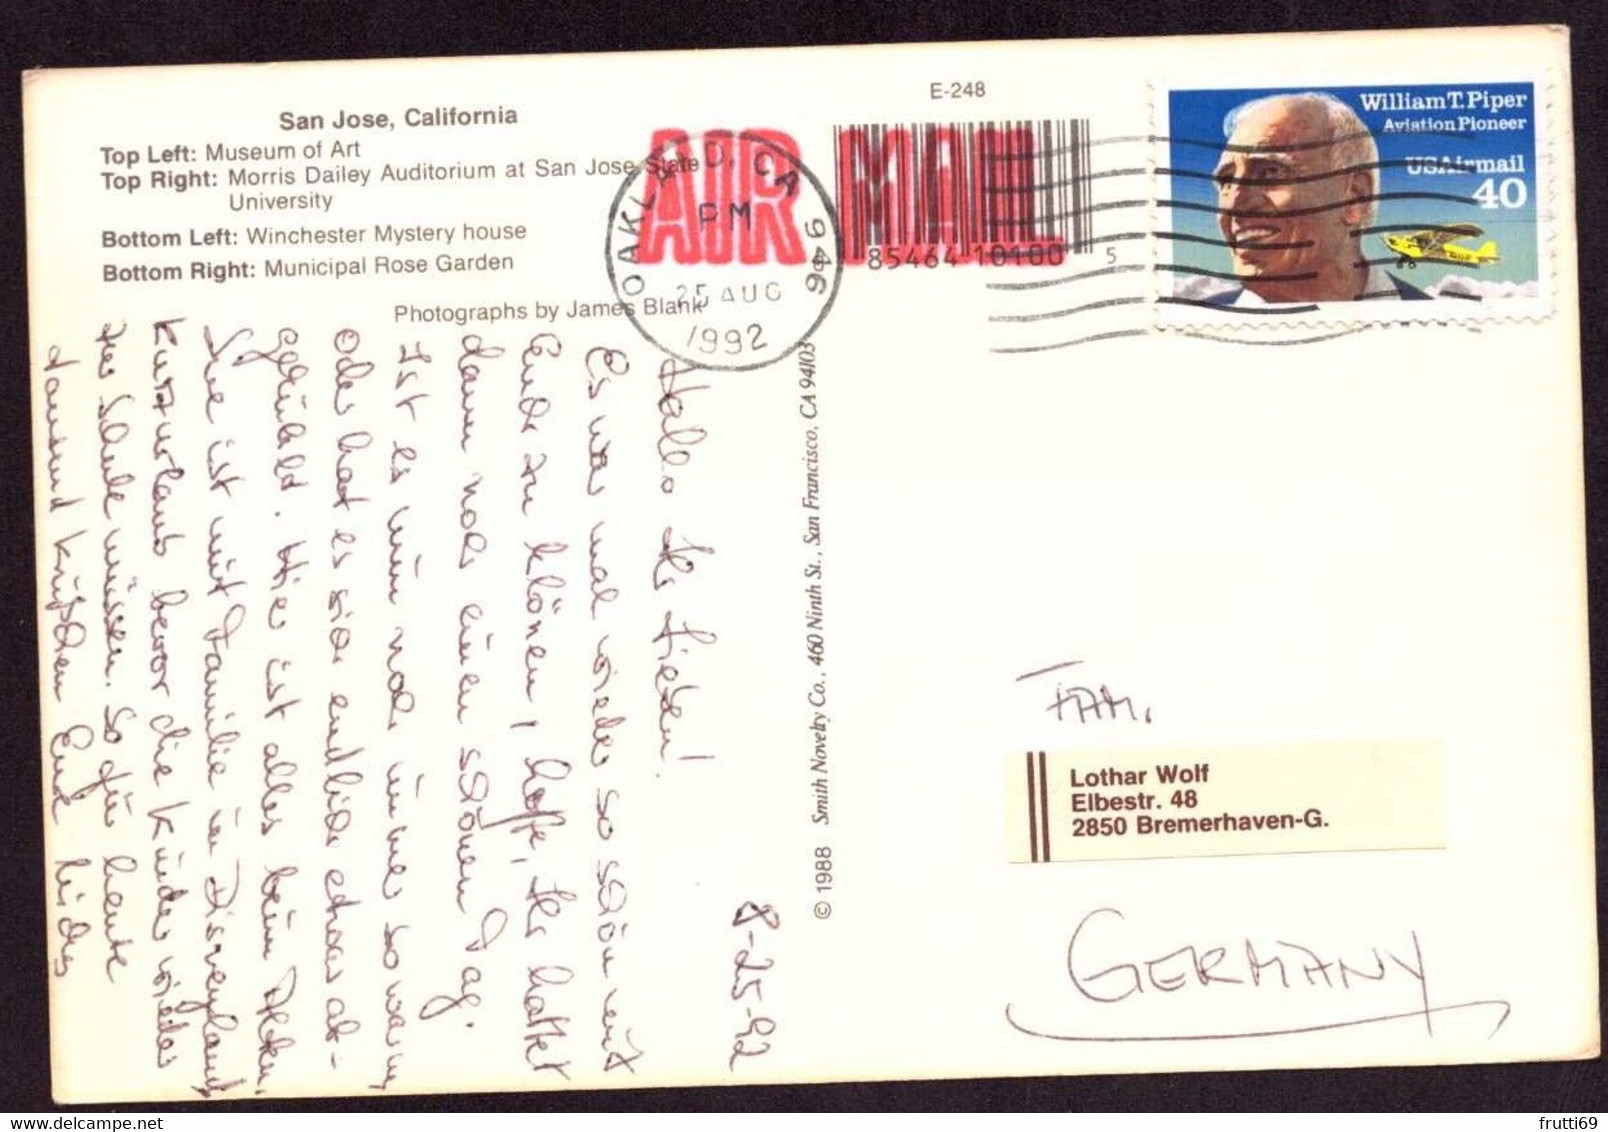 E-248
San Jose, California
Top Left: Museum of Art
Top Right: Morris Dailey Auditorium at San Jose State
University
Bottom Left: Winchester Mystery house
Bottom Right: Municipal Rose Garden
Photographs by James Blank
AIR MAIL
OAKLAND, CA 946
PM
25 AUG
1992
85464 10100 5
William T. Piper
Aviation Pioneer
USAirmail
40
8-25-92
Hallo Ihr Lieben!
Es war mal wieder so schön mit
Euch zu klönen, hoffe, Ihr hattet
dann noch einen schönen Tag.
Ist es nun noch immer so warm,
oder hat es sich endlich etwas ab-
gekühlt. Hier ist alles beim Alten,
Sue ist mit Familie in Disneyland,
Kurzurlaub bevor die Kinder wieder
zur Schule müssen. So für heute
tausend Küßchen Eure
© 1988 Smith Novelty Co., 460 Ninth St., San Francisco, CA 94103
FAM.
Lothar Wolf
Elbestr. 48
2850 Bremerhaven-G.
GERMANY
delcampe.net
frutti69